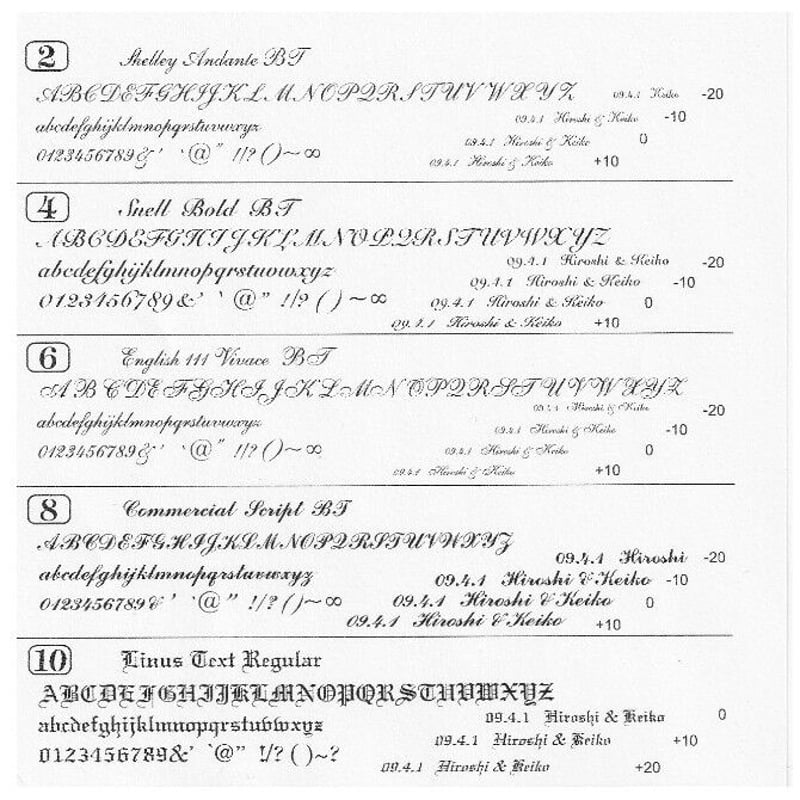 2 Shelley Andante BT
ABCDEFGHIJKLMNOPQRSTUVWXYZ 09.4.1 Keiko -20
abcdefghijklmnopqrstuvwxyz 09.4.1 Hiroshi & Keiko -10
0123456789&' `@" !/?()~∞ 09.4.1 Hiroshi & Keiko 0
09.4.1 Hiroshi & Keiko +10
4 Snell Bold BT
ABCDEFGHIJKLMNOPQRSTUVWXYZ
09.4.1 Hiroshi & Keiko -20
abcdefghijklmnopqrstuvwxyz 09.4.1 Hiroshi & Keiko -10
0123456789&' ` @" !/? ( ) ~ ∞ 09.4.1 Hiroshi & Keiko 0
09.4.1 Hiroshi & Keiko +10
6 English 111 Vivace BT
ABCDEFGHIJKLMNOPQRSTUVWXYZ
09.4.1 Hiroshi & Keiko -20
abcdefghijklmnopqrstuvwxyz 09.4.1 Hiroshi & Keiko -10
0123456789&' `@" !/?()~∞ 09.4.1 Hiroshi & Keiko 0
09.4.1 Hiroshi & Keiko +10
8 Commercial Script BT
ABCDEFGHIJKLMNOPQRSTUVWXYZ
09.4.1 Hiroshi -20
abcdefghijklmnopqrstuvwxyz 09.4.1 Hiroshi & Keiko -10
0123456789&' `@" !/?()~∞ 09.4.1 Hiroshi & Keiko 0
09.4.1 Hiroshi & Keiko +10
10 Linus Text Regular
ABCDEFGHIJKLMNOPQRSTUVWXYZ
abcdefghijklmnopqrstuvwxyz 09.4.1 Hiroshi & Keiko 0
0123456789&' `@" !/?()~? 09.4.1 Hiroshi & Keiko +10
09.4.1 Hiroshi & Keiko +20